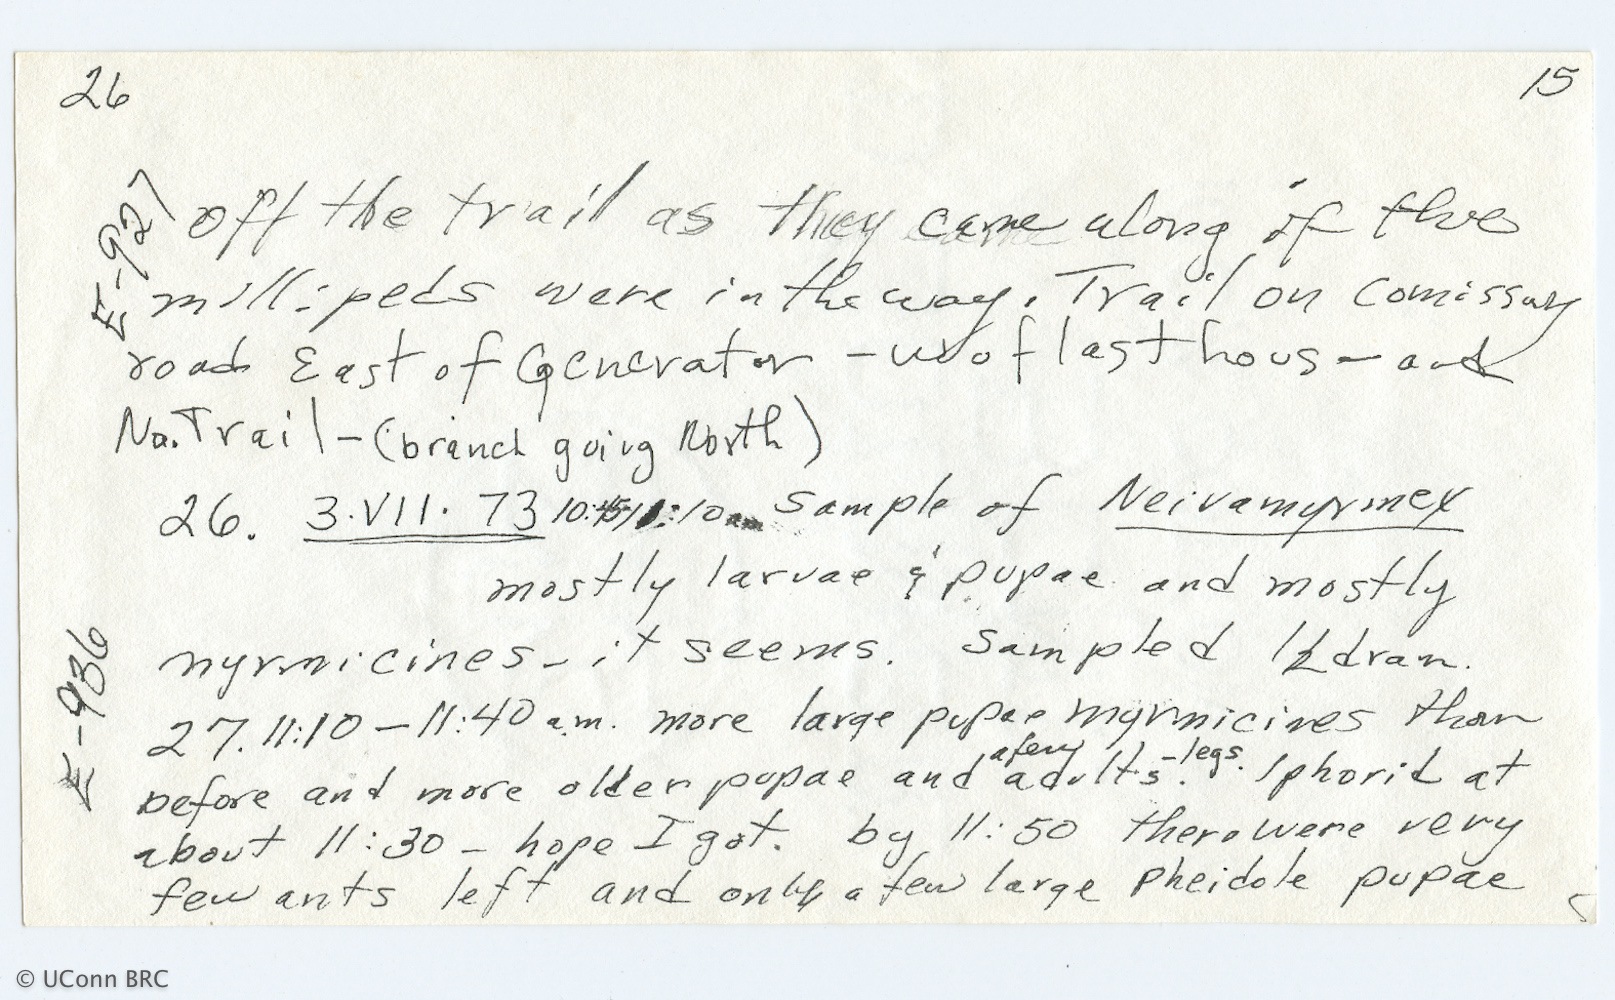 26
15
E-927
off the trail as they came along if the
millipeds were in the way. Trail on Comissary
road East of Generator - of last hous - and
No. Trail - (branch going North)
26. 3.VII.73 10:45/11:10 am Sample of Neivamyrmex
mostly larvae & pupae and mostly
myrmicines - it seems. Sampled 1/2 dram.
E-936
27. 11:10 - 11:40 a.m. more large pupae myrmicines than
before and more older pupae and a few adults - legs. 1 phorid at
about 11:30 - hope I got. by 11:50 there were very
few ants left and only a few large Pheidole pupae
© UConn BRC